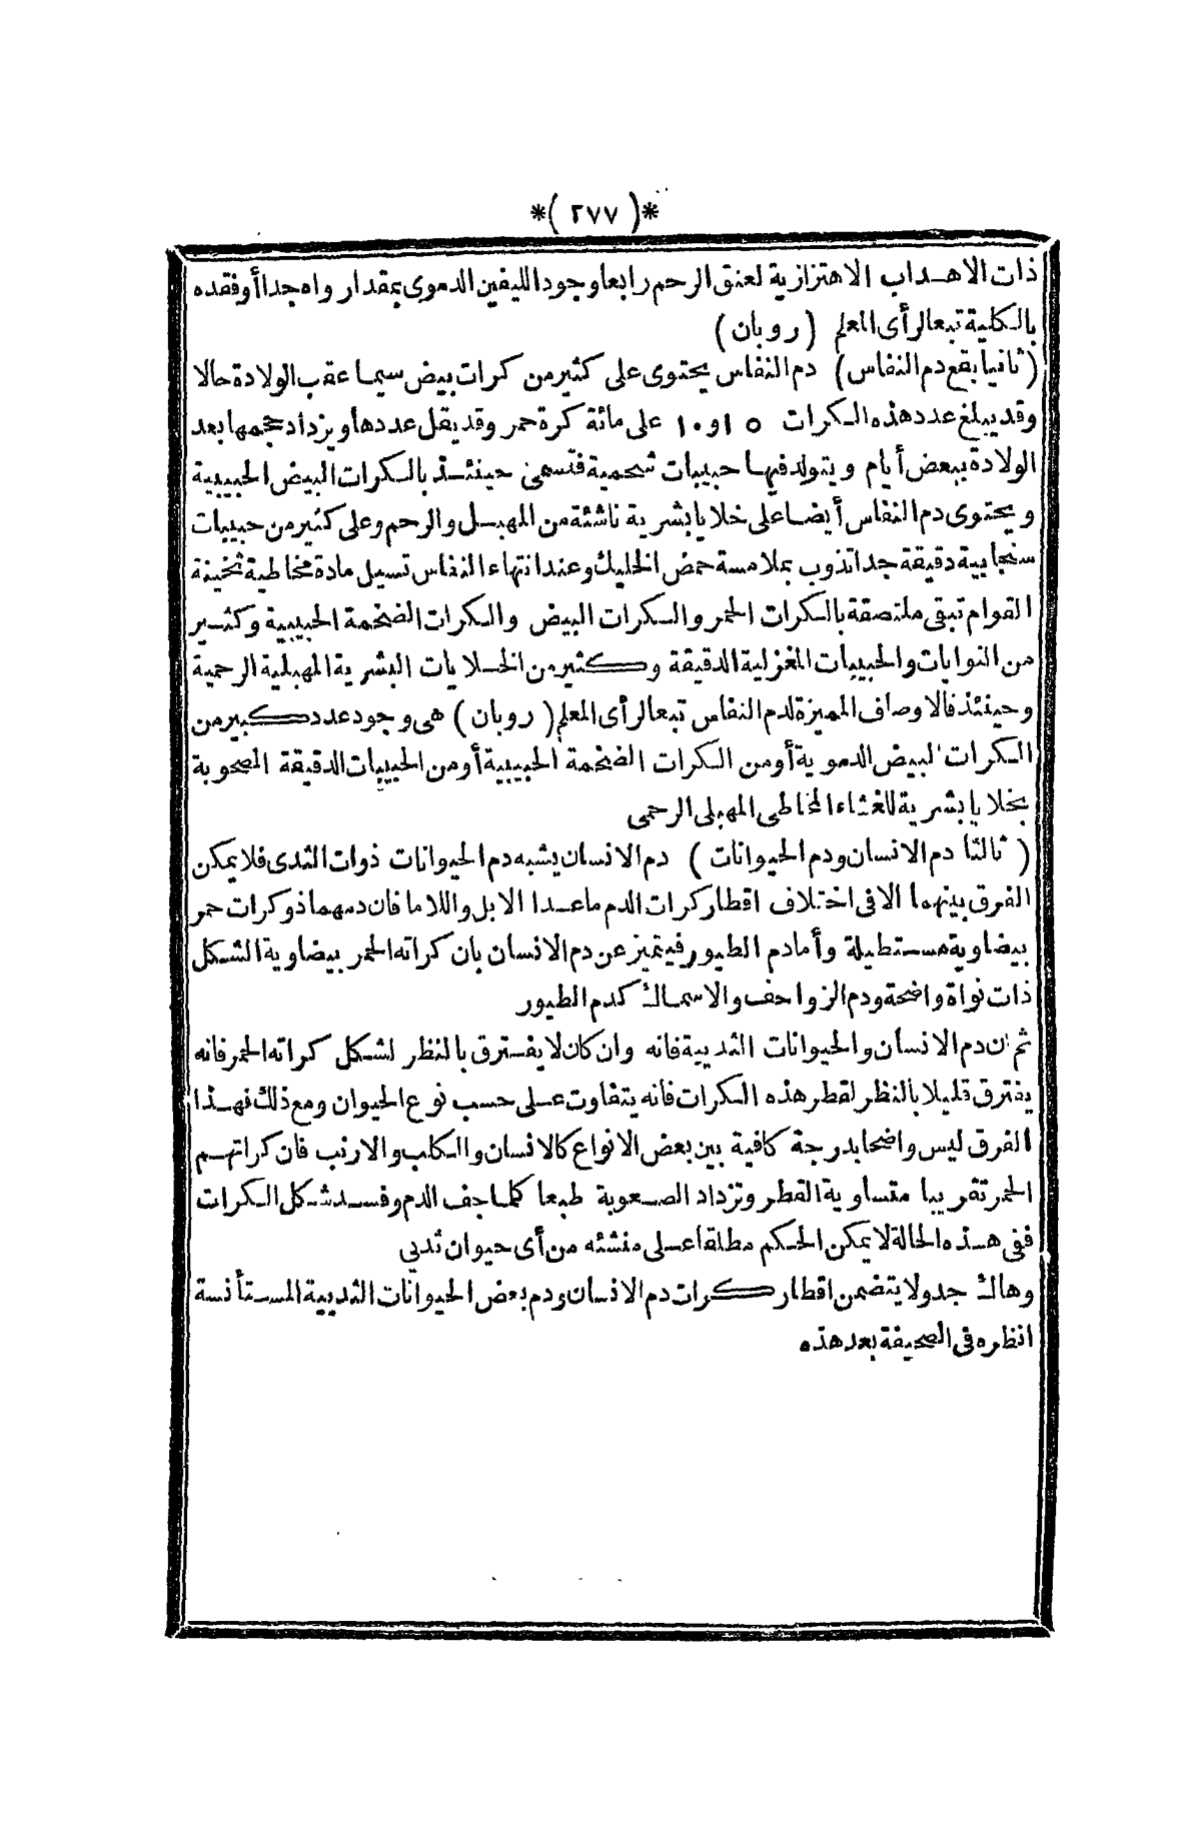 *( ٢٧٧ )*
ذات الاهداب الاهتزازية لعنق الرحم رابعا وجود الليفين الدموى بمقدار واه جدا أو فقده
بالكلية تبعا لرأى المعلم (روبان)
(ثانيا بقع دم النفاس) دم النفاس يحتوى على كثير من كرات بيض سيما عقب الولادة حالا
وقد يبلغ عدد هذه الكرات ٥ او ١٠ على مائة كرة حمر وقد يقل عددها ويزداد حجمها بعد
الولادة ببعض أيام ويتولد فيها حبيبات شحمية فتسمى حينئذ بالكرات البيض الحبيبية
ويحتوى دم النفاس أيضا على خلايا بشرية ناشئة من المهبل والرحم وعلى كثير من حبيبات
سنجابية دقيقة جدا تذوب بملامسة حمض الخليك وعند انتهاء النفاس تسيل مادة مخاطية ثخينة
القوام تبقى ملتصقة بالكرات الحمر والكرات البيض والكرات الضخمة الحبيبية وكثير
من النوايات والحبيبات المغزلية الدقيقة وكثير من الخلايات البشرية المهبلية الرحمية
وحينئذ فالاوصاف المميزة لدم النفاس تبعا لرأى المعلم (روبان) هى وجود عدد كبير من
الكرات البيض الدموية أو من الكرات الضخمة الحبيبية أو من الحبيبات الدقيقة المصحوبة
بخلايا بشرية للغشاء المخاطى المهبلى الرحمى
(ثالثا دم الانسان ودم الحيوانات) دم الانسان يشبه دم الحيوانات ذوات الثدى فلا يمكن
الفرق بينهما الا فى اختلاف اقطار كرات الدم ماعدا الابل واللاما فان دمهما ذو كرات حمر
بيضاوية مستطيلة وأما دم الطيور فيتميز عن دم الانسان بان كراته الحمر بيضاوية الشكل
ذات نواة واضحة ودم الزواحف والاسماك كدم الطيور
ثم ان دم الانسان والحيوانات الثديية فانه وان كان لا يفترق بالنظر لشكل كراته الحمر فانه
يفترق قليلا بالنظر لقطر هذه الكرات فانه يتفاوت على حسب نوع الحيوان ومع ذلك فهذا
الفرق ليس واضحا بدرجة كافية بين بعض الانواع كالانسان والكلب والارنب فان كراتهم
الحمر تقريبا متساوية القطر وتزداد الصعوبة طبعا كلما جف الدم وفسد شكل الكرات
ففى هذه الحالة لا يمكن الحكم مطلقا على منشئه من أى حيوان ثديى
وهاك جدولا يتضمن اقطار كرات دم الانسان ودم بعض الحيوانات الثديية المستأنسة
انظره فى الصحيفة بعد هذه